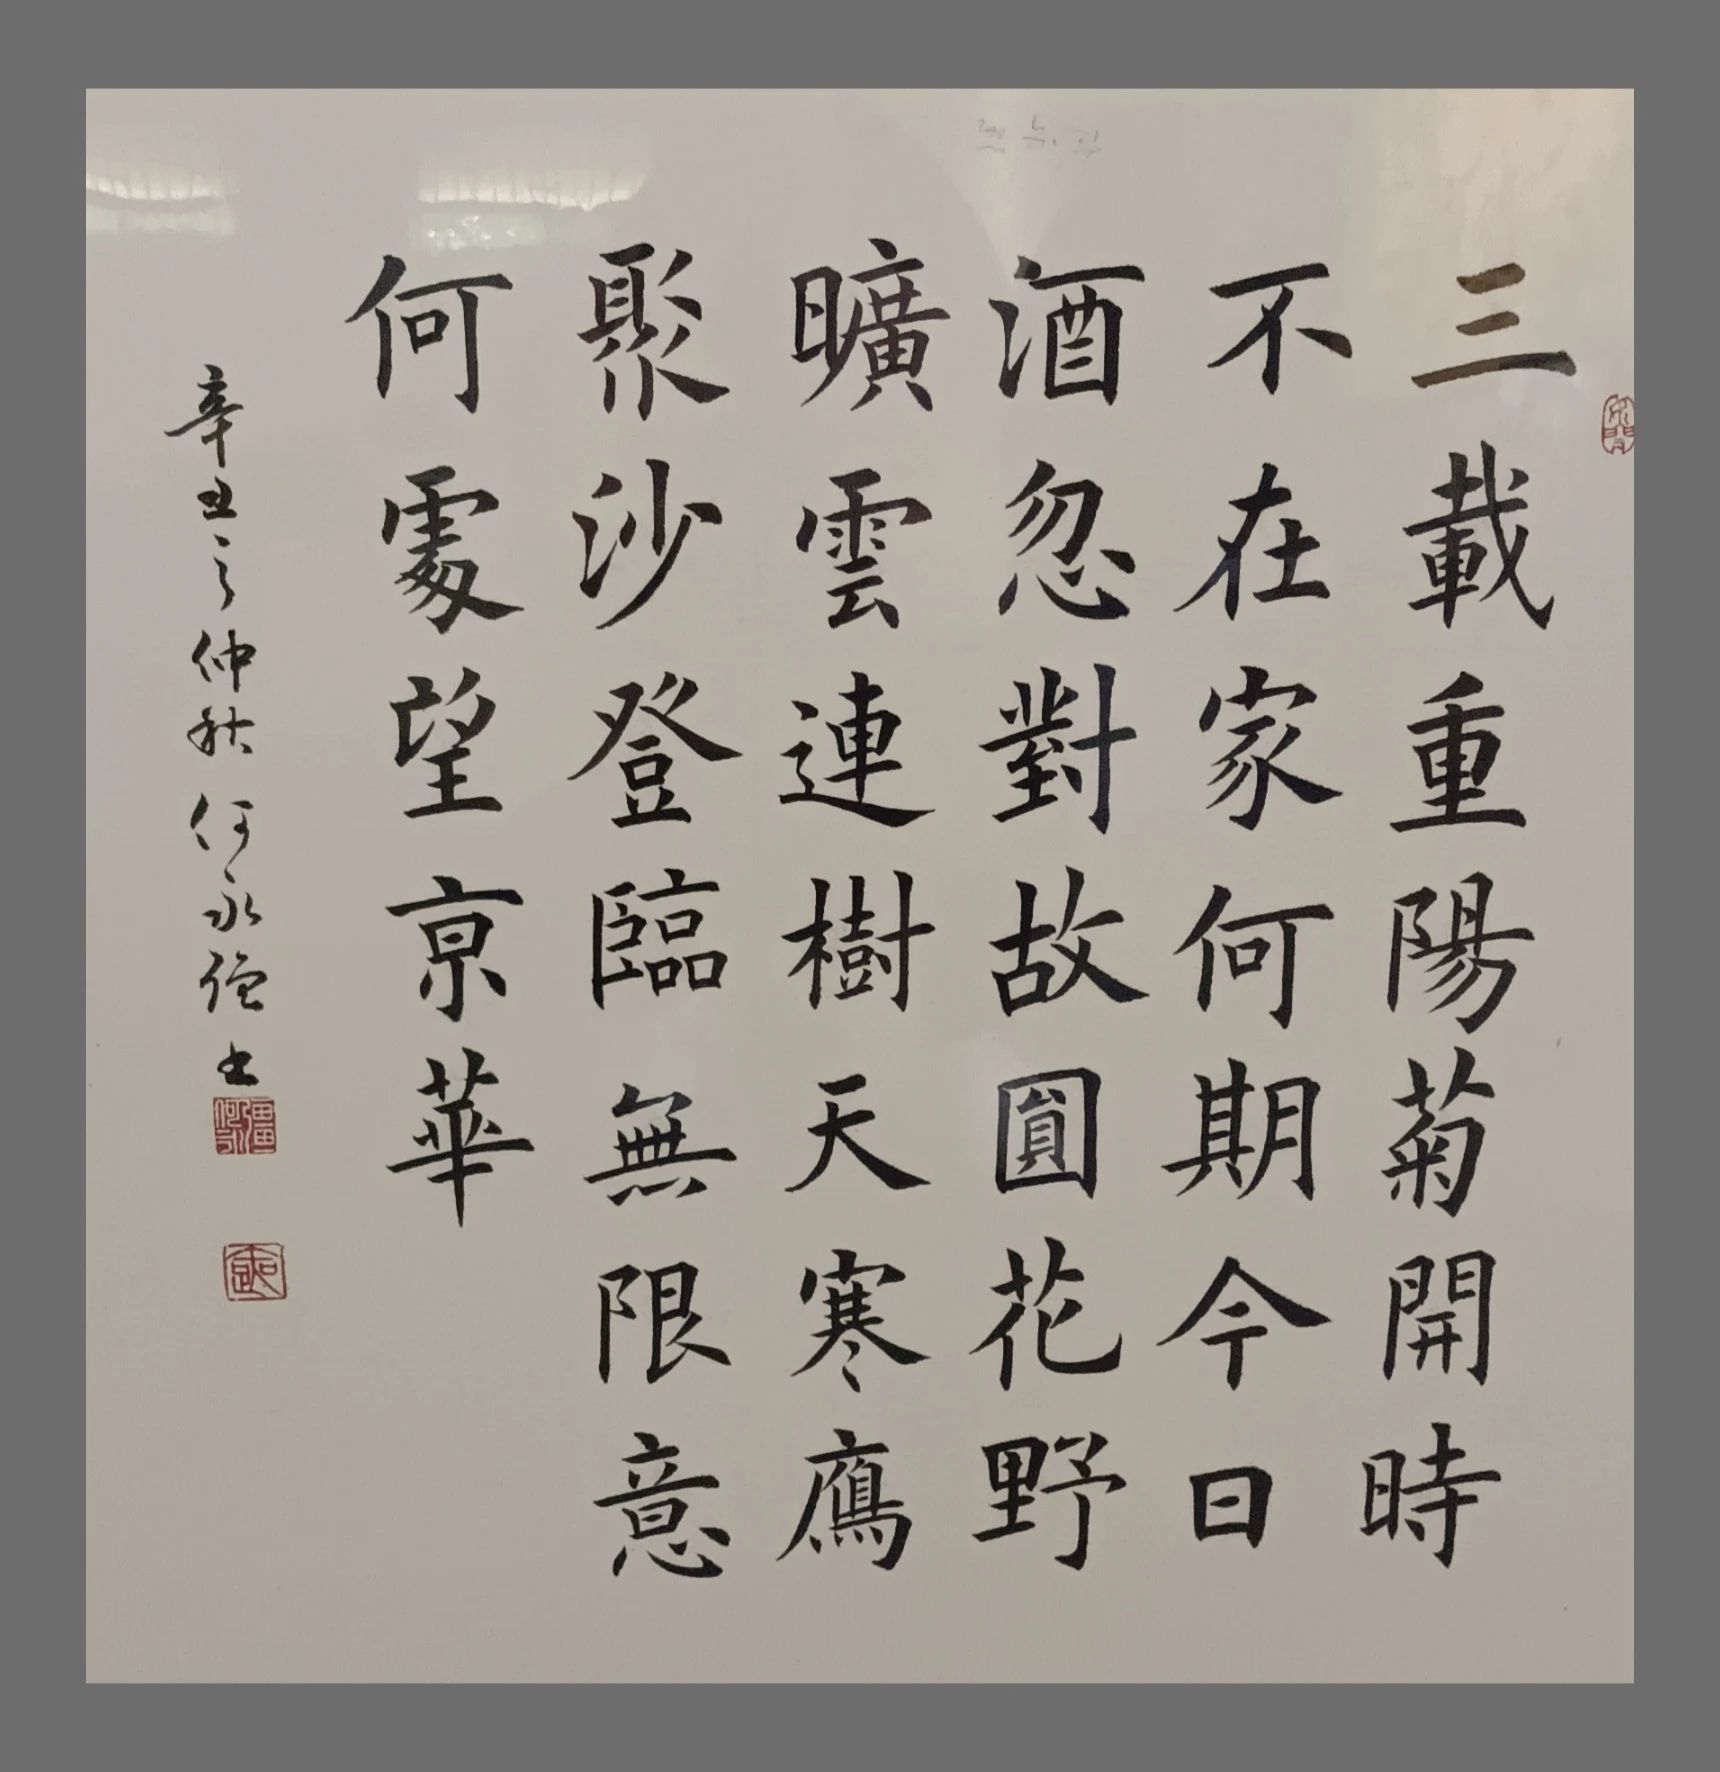 三載重陽菊開時
不在家何期今日
酒忽對故園花野
曠雲連樹天寒鴈
聚沙登臨無限意
何處望京華
辛丑之仲秋何永强書